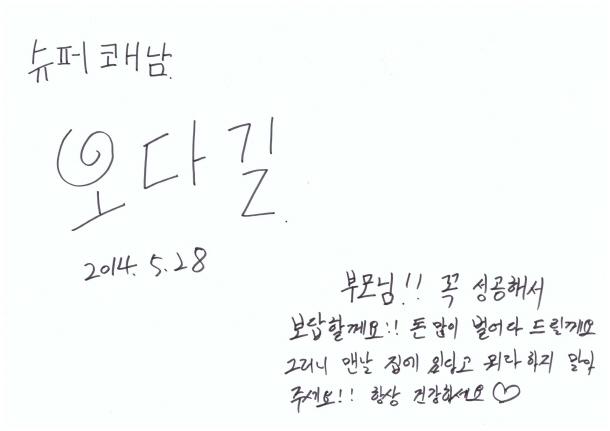 슈퍼쾌남.
오다길.
2014. 5. 28
부모님!! 꼭 성공해서
보답할께요!! 돈 많이 벌어다 드릴께요
그러니 맨날 집에 없다고 뭐라하지 말아
주세요!! 항상 건강하세요♡